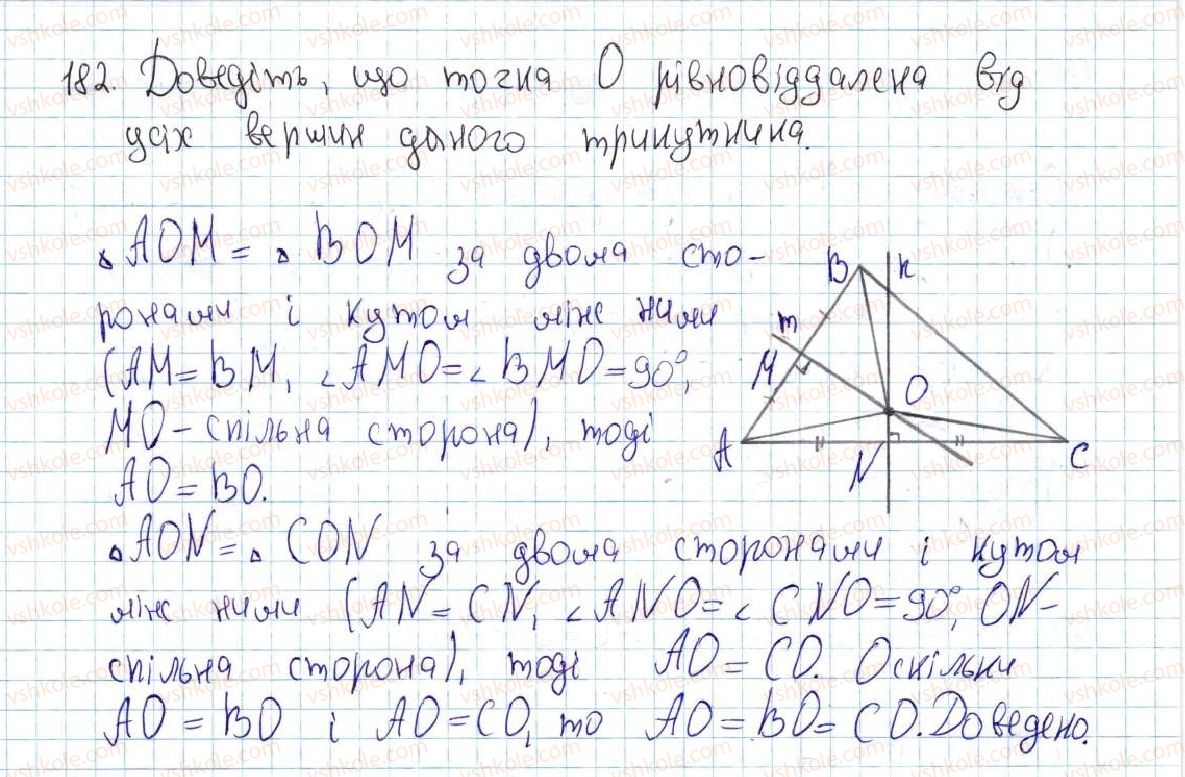 182. Доведіть, що точка О рівновіддалена від
усіх вершин даного трикутника.
▵AOM = ▵BOM за двома сто-
ронами і кутом між ними
(AM = BM, ∠AMO = ∠BMO = 90°,
MO - спільна сторона), тоді
AO = BO.
▵AON = ▵CON за двома сторонами і кутом
між ними (AN = CN, ∠ANO = ∠CNO = 90°, ON -
спільна сторона), тоді AO = CO. Оскільки
AO = BO і AO = CO, то AO = BO = CO. Доведено.
B
m
M
O
A
N
C
vshkole.com